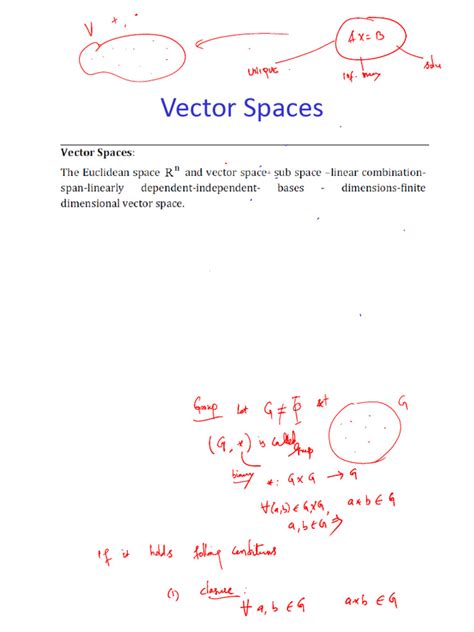 V +, ·
AX = B
unique
inf. many
solu
Vector Spaces
Vector Spaces:
The Euclidean space Rⁿ and vector space- sub space –linear combination-
span-linearly dependent-independent- bases - dimensions-finite
dimensional vector space.
Group let G ≠ Φ set G
(G, *) is called
Group
binary *: G×G → G
∀(a,b) ∈ G×G, a*b ∈ G
a,b ∈ G ⇒
If it holds following conditions
(1) closure:
∀ a, b ∈ G a*b ∈ G